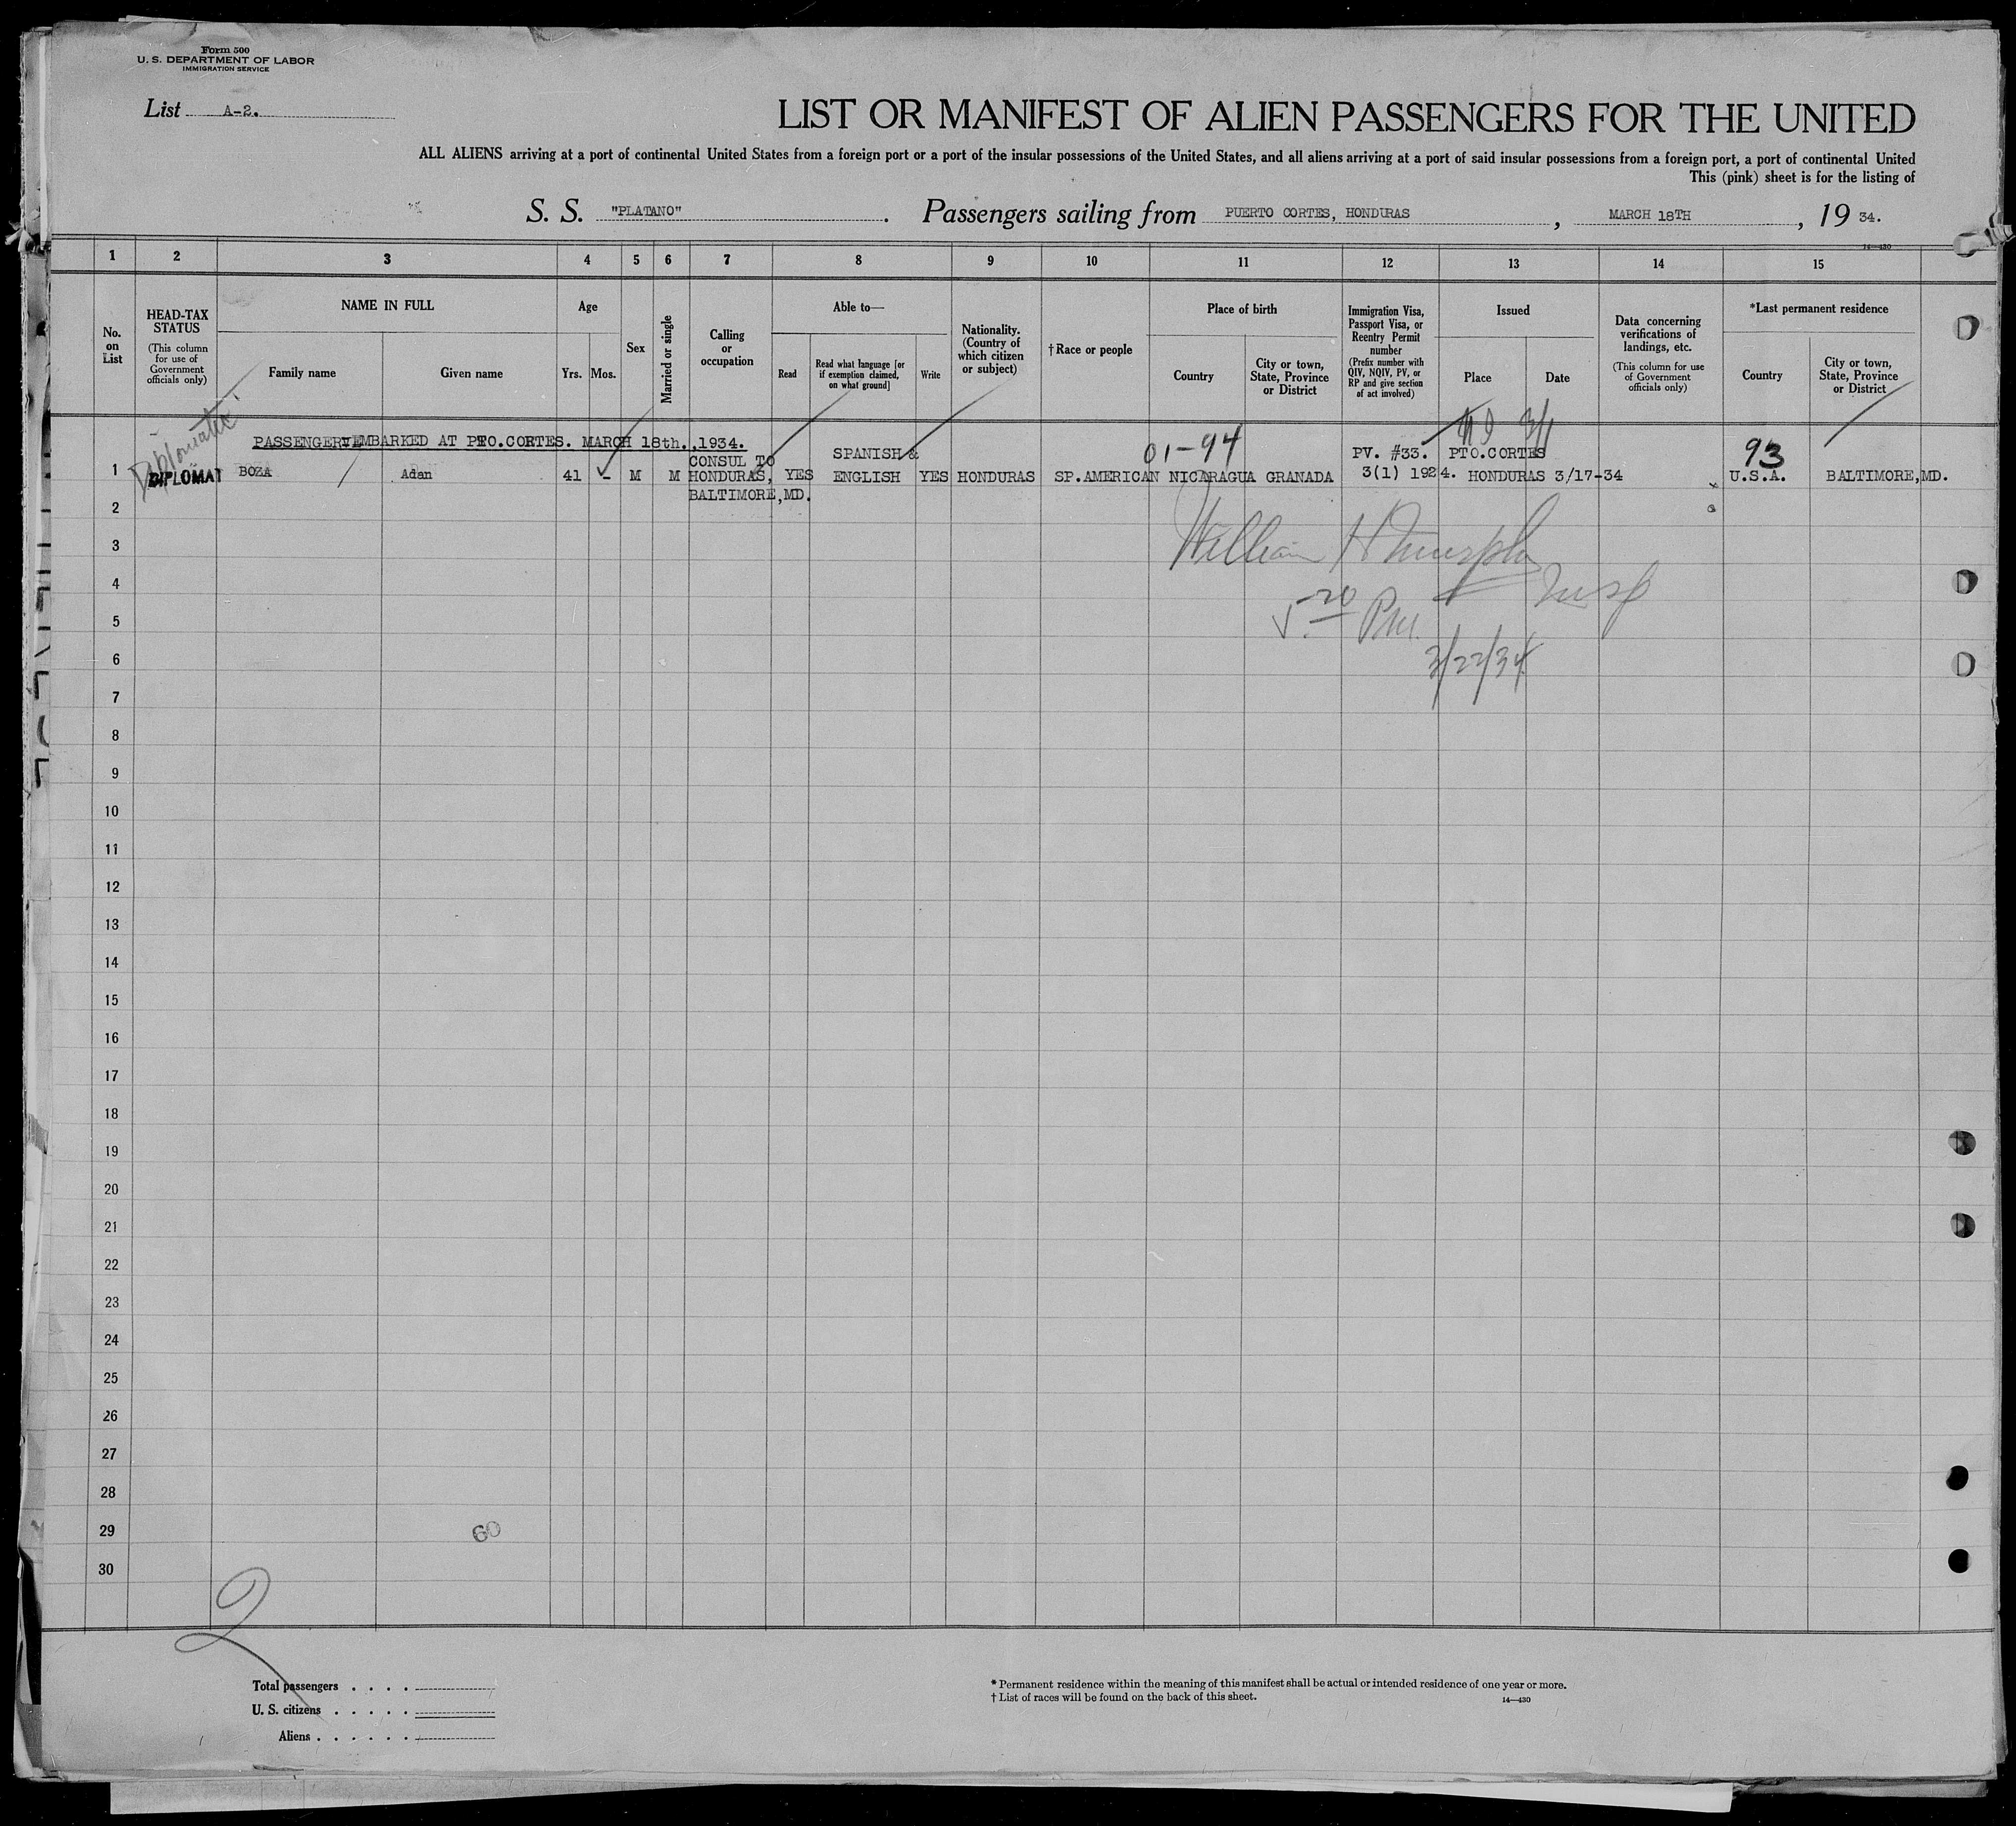 Form 500
U. S. DEPARTMENT OF LABOR
IMMIGRATION SERVICE
List A-2.
LIST OR MANIFEST OF ALIEN PASSENGERS FOR THE UNITED
ALL ALIENS arriving at a port of continental United States from a foreign port or a port of the insular possessions of the United States, and all aliens arriving at a port of said insular possessions from a foreign port, a port of continental United
This (pink) sheet is for the listing of
S. S. "PLATANO". Passengers sailing from PUERTO CORTES, HONDURAS, MARCH 18TH, 19 34.
14—430
1 2 3 4 5 6 7 8 9 10 11 12 13 14 15
No. on List
HEAD-TAX STATUS
(This column for use of Government officials only)
NAME IN FULL
Family name
Given name
Age
Yrs.
Mos.
Sex
Married or single
Calling or occupation
Able to—
Read
Read what language [or if exemption claimed, on what ground]
Write
Nationality. (Country of which citizen or subject)
† Race or people
Place of birth
Country
City or town, State, Province or District
Immigration Visa, Passport Visa, or Reentry Permit number
(Prefix number with QIV, NQIV, PV, or RP and give section of act involved)
Issued
Place
Date
Data concerning verifications of landings, etc.
(This column for use of Government officials only)
*Last permanent residence
Country
City or town, State, Province or District
Diplomatic
PASSENGER EMBARKED AT PTO.CORTES. MARCH 18th.,1934.
01-94
93
1 DIPLOMAT BOZA Adan 41 - M M CONSUL TO HONDURAS, BALTIMORE,MD. YES SPANISH & ENGLISH YES HONDURAS SP.AMERICAN NICARAGUA GRANADA PV. #33. 3(1) 1924. PTO.CORTES HONDURAS 3/17-34 U.S.A. BALTIMORE,MD.
2
3
William H Murphy
4
Insp
5
5 20 PM.
6
3/22/34
7
8
9
10
11
12
13
14
15
16
17
18
19
20
21
22
23
24
25
26
27
28
29
60
30
2
Total passengers
U. S. citizens
Aliens
* Permanent residence within the meaning of this manifest shall be actual or intended residence of one year or more.
† List of races will be found on the back of this sheet.
14—430